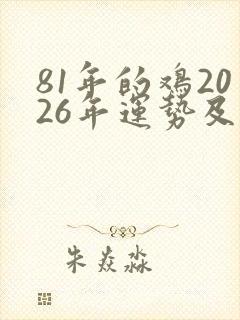 81年的鸡20
26年運势及
朱焱淼